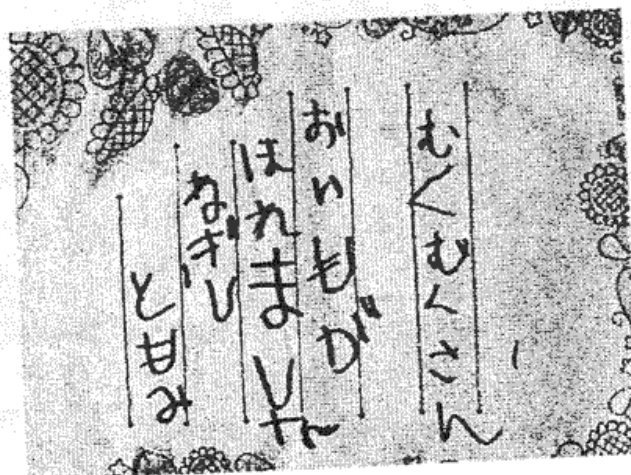 むくむくさん
おいもが
はれました
ねぎし
ともみ